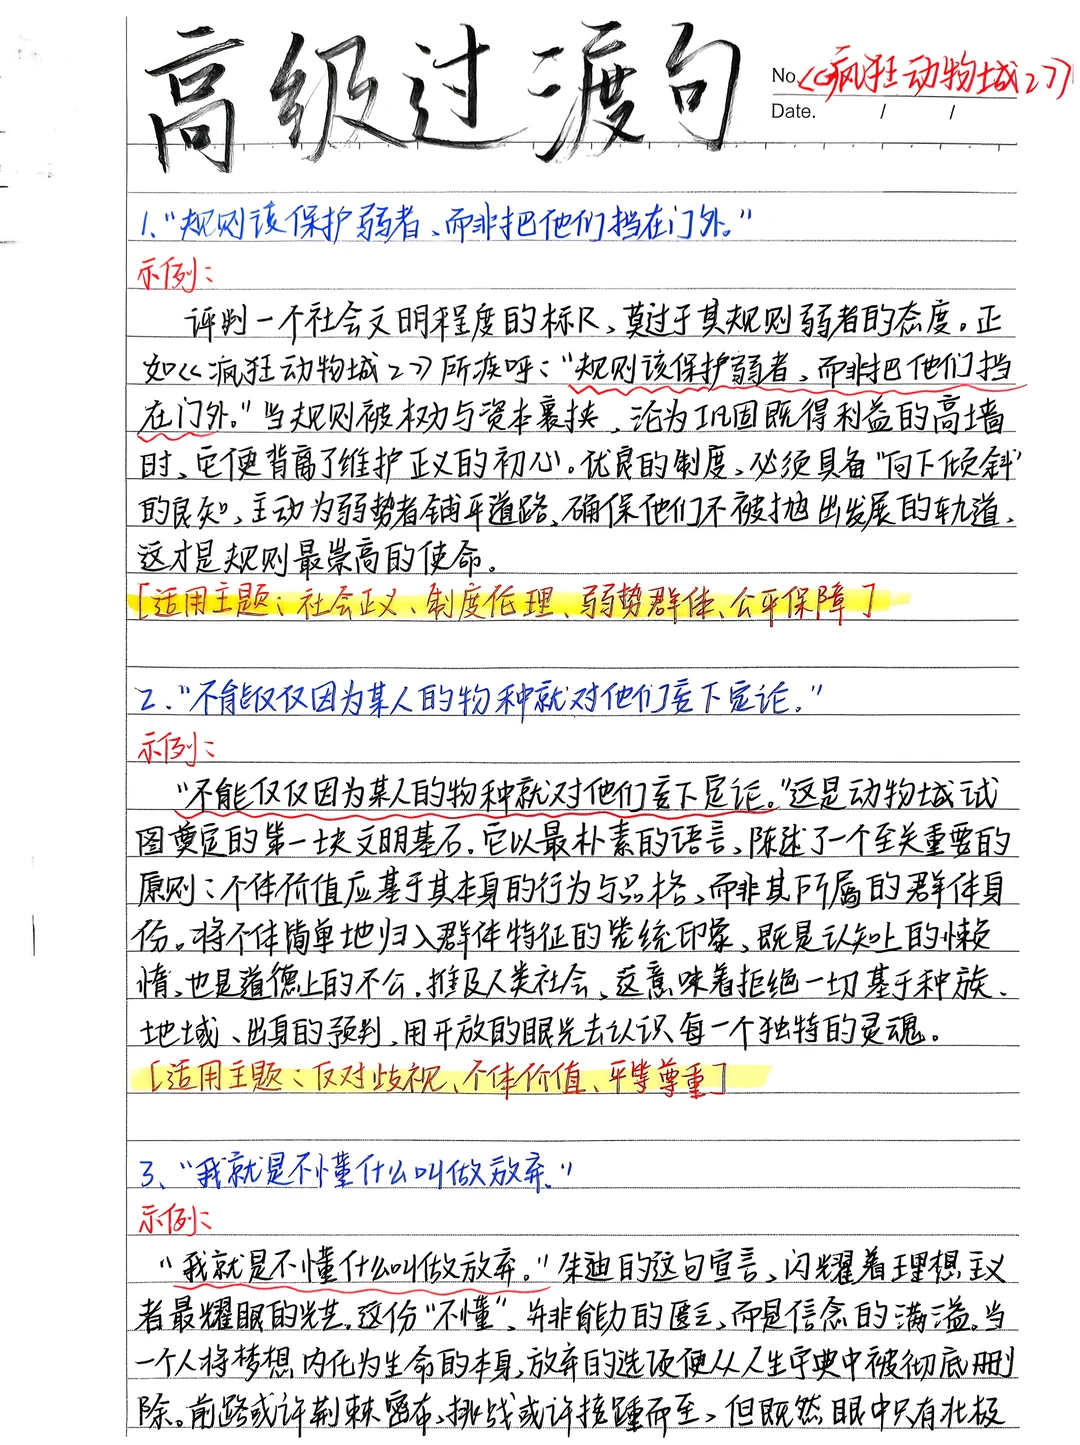 高级过渡句
No.《疯狂动物城2》
Date. / /
1、“规则该保护弱者、而非把他们挡在门外。”
示例：
评判一个社会文明程度的标尺、莫过于其规则弱者的态度。正
如《疯狂动物城2》所疾呼：“规则该保护弱者、而非把他们挡
在门外。”当规则被权力与资本裹挟、沦为巩固既得利益的高墙
时、它便背离了维护正义的初心。优良的制度、必须具备“向下倾斜”
的良知、主动为弱势者铺平道路、确保他们不被抛出发展的轨道、
这才是规则最崇高的使命。
[适用主题：社会正义、制度伦理、弱势群体、公平保障]
2、“不能仅仅因为某人的物种就对他们妄下定论。”
示例：
“不能仅仅因为某人的物种就对他们妄下定论。”这是动物城试
图奠定的第一块文明基石。它以最朴素的语言、陈述了一个至关重要的
原则：个体价值应基于其本身的行为与品格、而非其所属的群体身
份。将个体简单地归入群体特征的笼统印象、既是认知上的懒
惰、也是道德上的不公。推及人类社会、这意味着拒绝一切基于种族、
地域、出身的预判、用开放的眼光去认识每一个独特的灵魂。
[适用主题：反对歧视、个体价值、平等尊重]
3、“我就是不懂什么叫做放弃。”
示例：
“我就是不懂什么叫做放弃。”朱迪的这句宣言、闪耀着理想主义
者最耀眼的光芒。这份“不懂”、并非能力的匮乏、而是信念的满溢。当
一个人将梦想内化为生命的本身、放弃的选项便从人生字典中被彻底删
除。前路或许荆棘密布、挑战或许接踵而至、但既然眼中只有北极